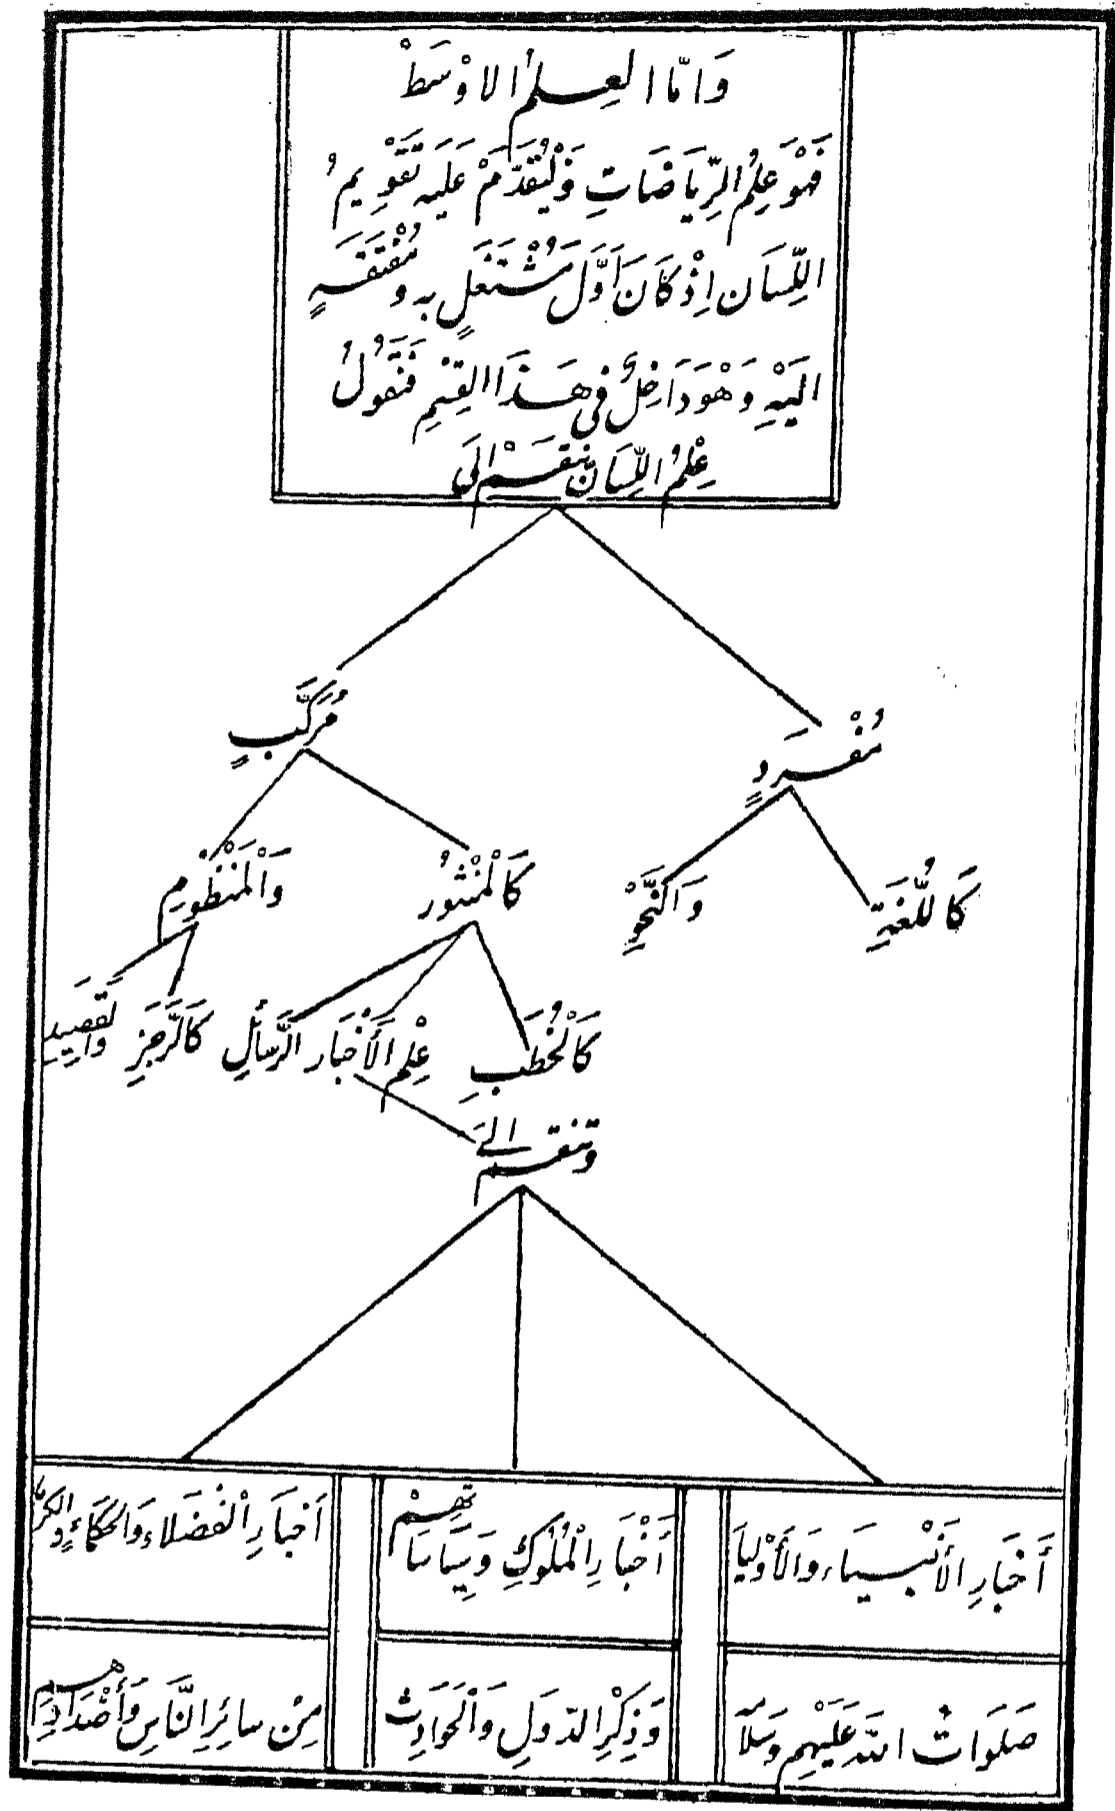 وَامَّا العِلمُ الاوْسَطْ
فَهْوَ عِلمُ الرِّيَاضَاتِ وَلْيُقَدَّمَ مْ عَلَيهِ تَقْوِيمُ
اللِّسَان اِذْ كَانَ اَوَّلَ مُشْتَغَلٍ بِهِ وَ مُفْتَقَرٍ
اليَهْ وَهْوَ دَاخِلٌ فى هَذَا القِسْمِ فَنَقُولُ
عِلْمُ اللِّسَانّ ينقَسمْ الَى
مُرَكَّبٍ
مُفْرَدٍ
كَاللُّغَةِ
وَالنَّحْوِ
كَالْمَنْثُورُ
وَالْمَنْظُومِ
كَالْخُطَبِ
عِلْم الأَخْبَار
الرَّسَائلِ
كَالرَّجَزِ
والقَصِيدِ
وَتنقسم الىَ
أَخْبَارِ الأَنْبسيَاء وَالأَوْليَا
صَلَوَاتُ اللّه عَلَيْهِم وَسَلَا
أَخْبَارِ الْمُلُوكِ وَسِيَاسَاتهِمْ
وَذِكْرِ الدّوَلِ وَالْحَوَادِث
اَخْبَارِ الْفُضَلَاء وَالحكمَاءِ وَالكَرَّ
مِنْ سائِرِ النَّاسِ وَأَضْدَادِهِم